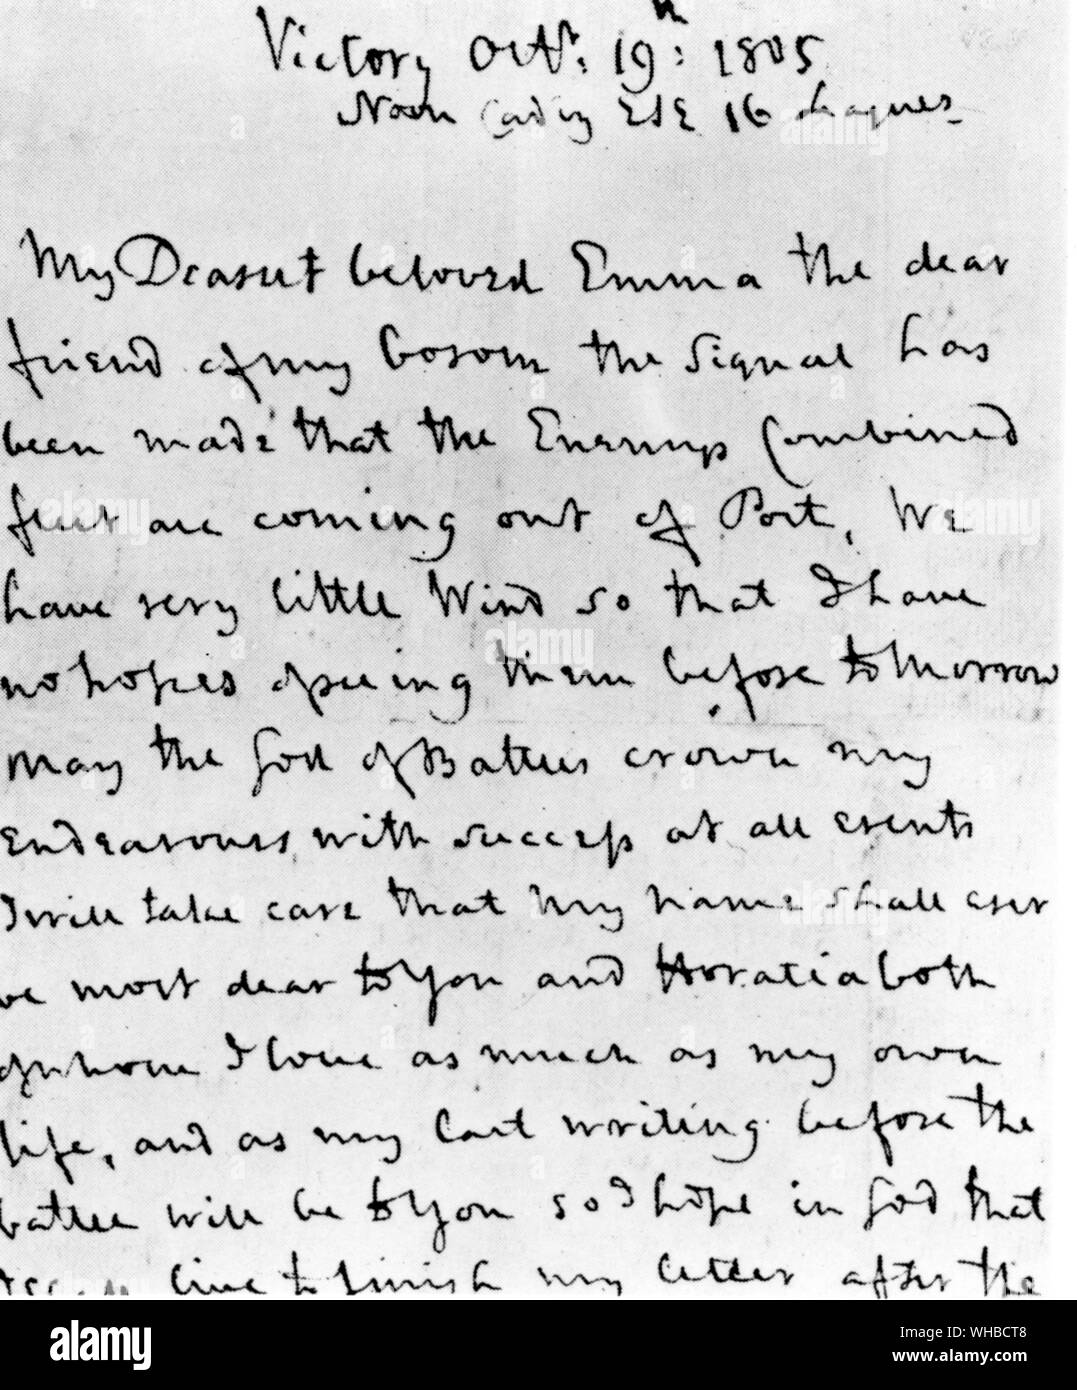 Victory Octr: 19th: 1805
Noon Cadiz ESE 16 Leagues
My Dearest beloved Emma the dear
friend of my bosom the Signal has
been made that the Enemys Combined
fleet are coming out of Port, We
have very little Wind so that I have
no hopes of seeing them before tomorrow
May the God of Battles crown my
Endeavours with success at all events
I will take care that my name shall ever
be most dear to You and Horatia both
of whom I love as much as my own
life, and as my last writing before the
battle will be to You so I hope in God that
live to finish my letter after the
alamy
Image ID: WHBCT8
www.alamy.com